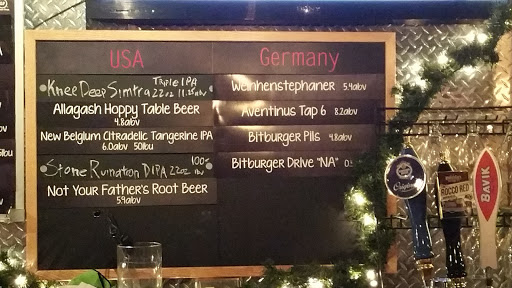 USA
Knee Deep Simtra Triple IPA
22oz 11.25abv
Allagash Hoppy Table Beer
4.8abv
New Belgium Citradelic Tangerine IPA
6.0abv 50ibu
Stone Ruination DIPA 22oz 100+
ibu
Not Your Father's Root Beer
5.9abv
Germany
Weinhenstephaner 5.4abv
Aventinus Tap 6 8.2abv
Bitburger Pils 4.8abv
Bitburger Drive "NA" 0.
Original
ROCCO RED
BAVIK